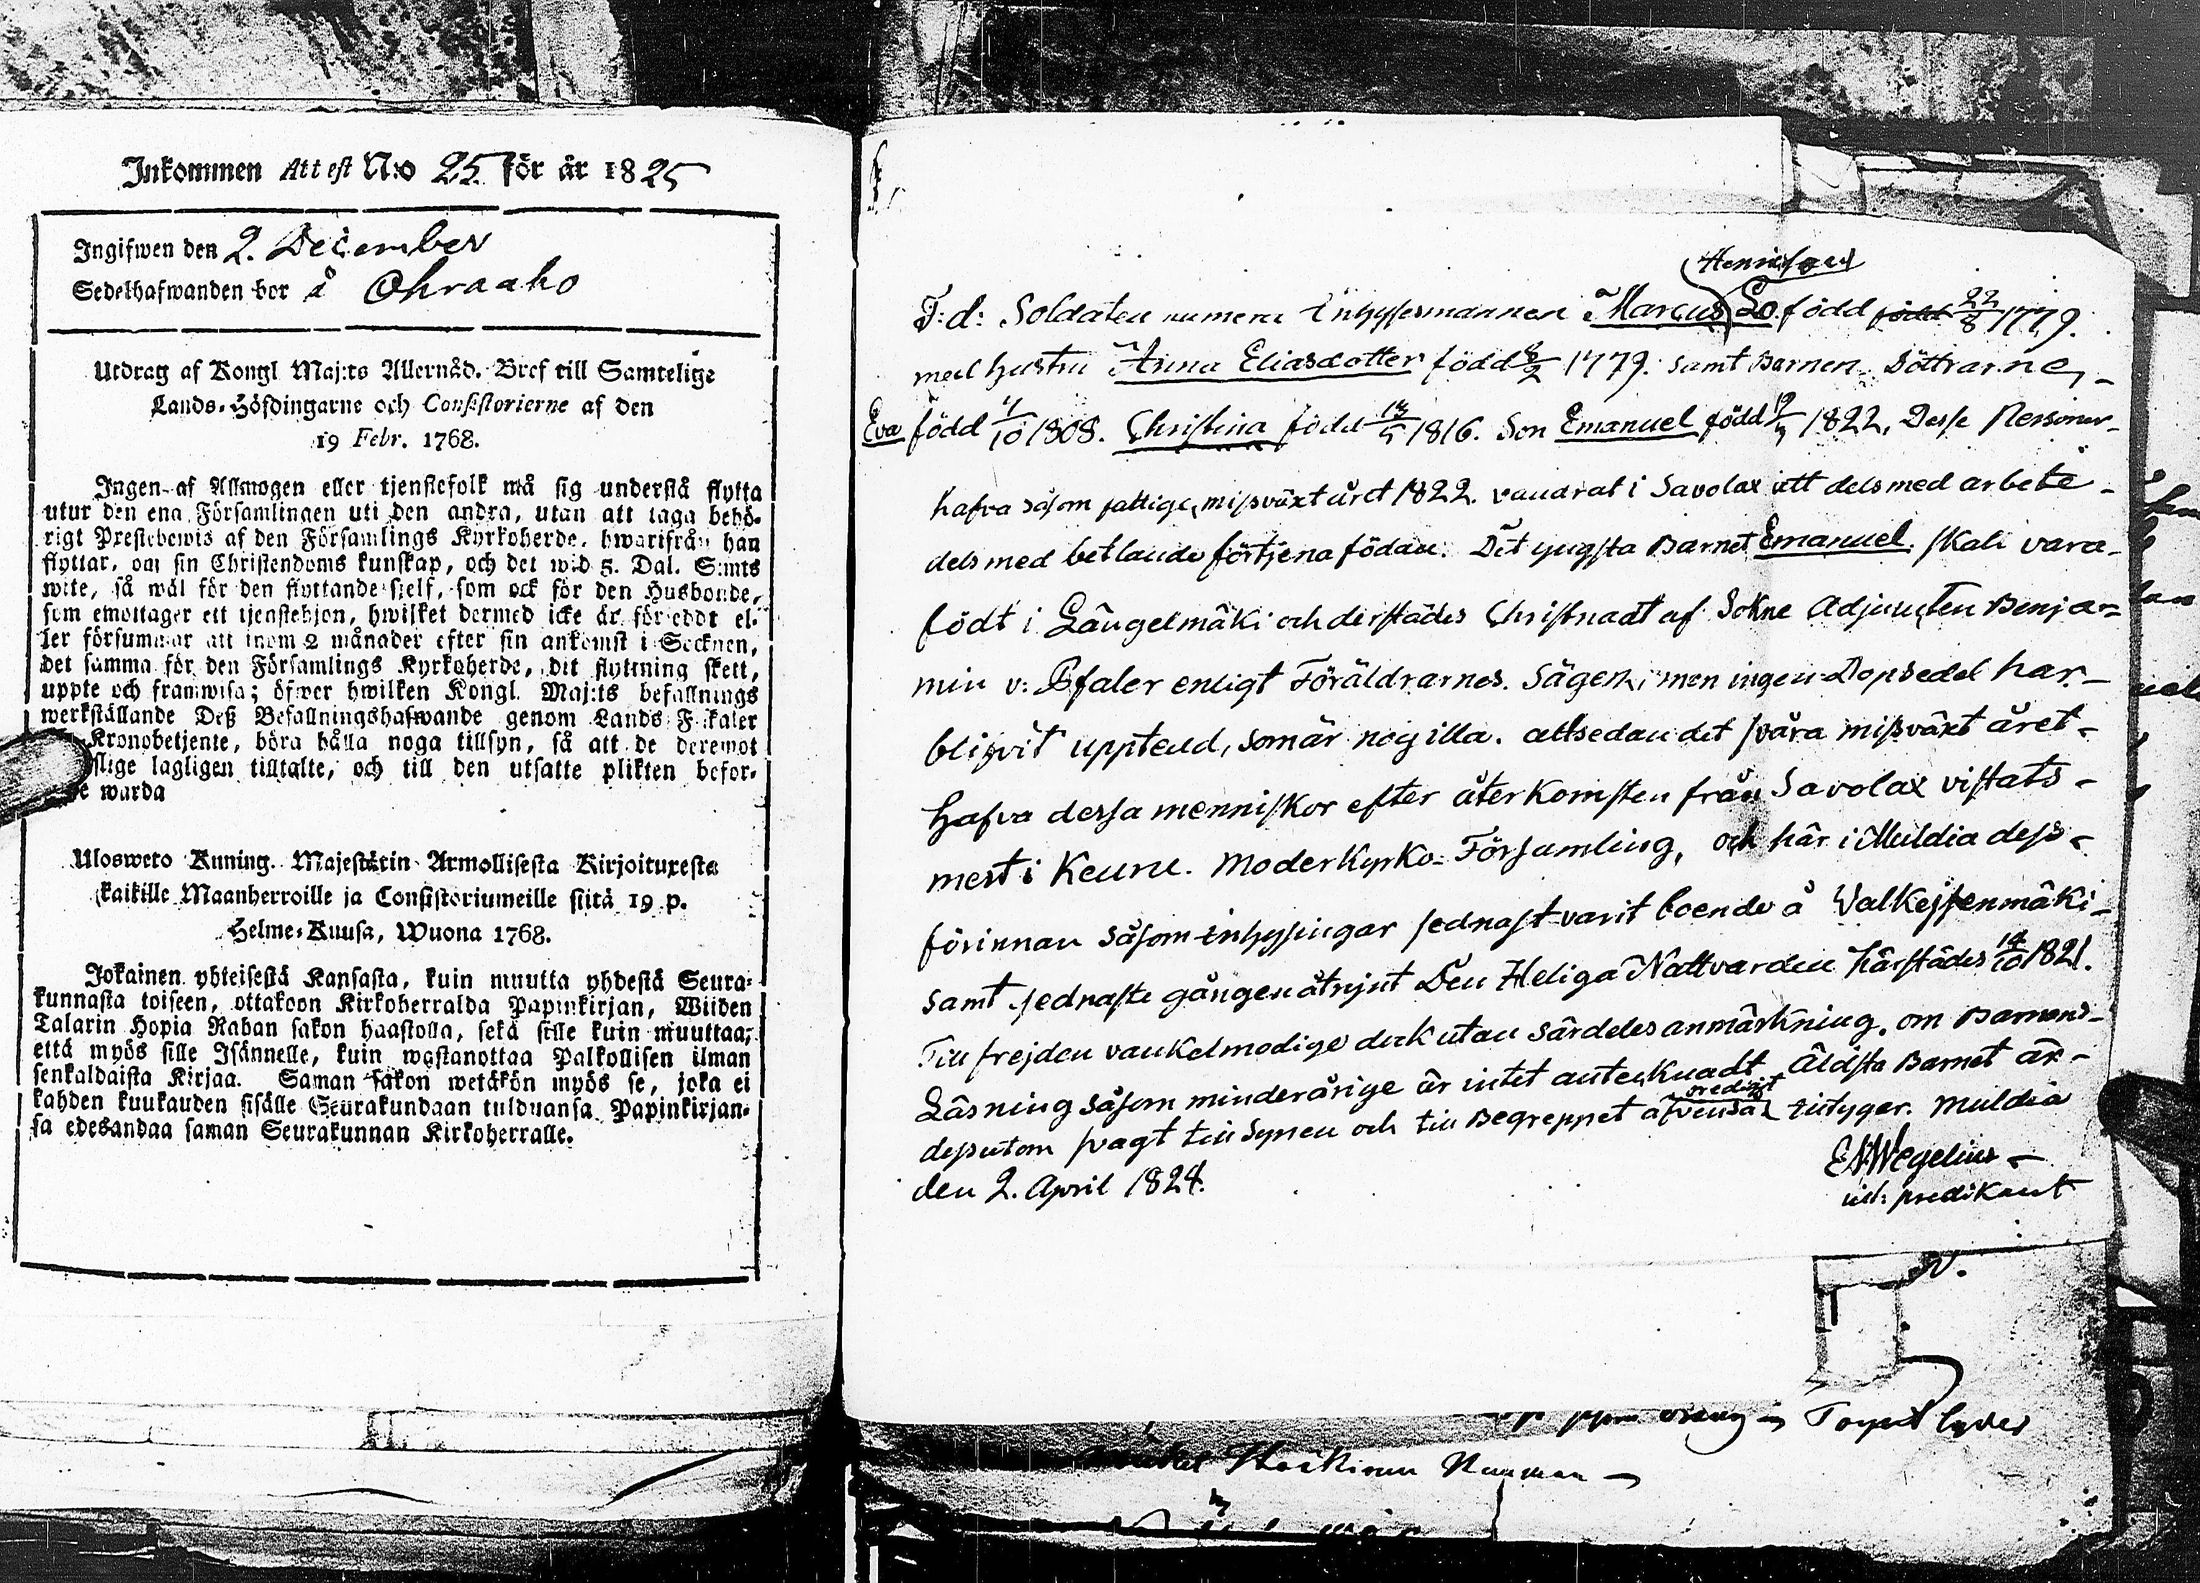 Inkommen Attest N:o 25. för år 1825
Ingifwen den 2. December
Sedelhafwanden bor å Ohraaho
Utdrag af Kongl Maj:ts Allernåd. Bref till Samtelige
Lands-Höfdingarne och Consistorierne af den
19 Febr. 1768.
Ingen af Allmogen eller tjenstefolk må sig understå flytta
utur den ena Församlingen uti den andra, utan att taga behö-
rigt Prestebewis af den Församlings Kyrkoherde, hwarifrån han
flyttar, om sin Christendoms kunskap, och det wid 5. Dal. S:mts
wite, så wäl för den flyttande sjelf, som ock för den Husbonde,
som emottager ett tjenstehjon, hwilket dermed icke är föreddt el-
ler försummar att inom 2 månader efter sin ankomst i Socknen,
det samma för den Församlings Kyrkoherde, dit flyttning skett,
uppte och framwisa; öfwer hwilken Kongl. Maj:ts befallnings
werkställande Deß Befallningshafwande genom Lands Fiskaler
Kronobetjente, böra hålla noga tillsyn, så att de deremot
slige lagligen tilltalte, och till den utsatte plikten befor-
warda
Ulosweto Kuning. Majestätin Armollisesta Kirjoituxesta
kaikille Maanherroille ja Consistoriumeille siitä 19 p.
Helme-Kuusa, Wuona 1768.
Jokainen yhteisestä Kansasta, kuin muutta yhdestä Seura-
kunnasta toiseen, ottakoon Kirkoherralda Papinkirjan, Wiiden
Talarin Hopia Rahan sakon haastolla, sekä sille kuin muuttaa,
että myös sille Isännelle, kuin wastanottaa Palkollisen ilman
senkaldaista Kirjaa. Saman sakon wetäkön myös se, joka ei
kahden kuukauden sisälle Seurakundaan tulduansa Papinkirjan-
sa edesandaa saman Seurakunnan Kirkoherralle.
Henricsson
F:d: Soldaten numera Inhysesmannen Marcus Lo född född 22/8 1779.
med hustru Anna Eliasdotter född 8/2 1779. samt Barnen. Döttrarne,
Eva född 11/10 1808. Christina född 13/5 1816. Son Emanuel född 1822, Desse Personer
hafva såsom fattige, missväxt året 1822. vandrat i Savolax att dels med arbete
dels med betlande förtjena födan. Det yngsta Barnet Emanuel skall vara
födt i Längelmäki och derstädes Christnadt af Sokne Adjuncten Benja-
min v: Pfaler enligt Föräldrarnes Sägen, men ingen Dopsedel har
blifvit uppteed, som är nog illa. allsedan det svåra missväxt året
hafva dessa menniskor efter återkomsten från Savolax vistats
mest i Keuru. Moderkyrko-Församling, och här i Muldia dess-
förinnan såsom inhysingar sednast varit boende å Valkejsenmäki
samt sednaste gången åtnjut Den Heliga Nattvarden härstädes 14/10 1821.
Till frejden vankelmodige dock utan särdeles anmärkning. om Barnens
Läsning såsom minderårige är intet antecknadt. Äldsta Barnet är
dessutom svagt till Synen och till Begreppet äfvensa tillyger. Muldia
den 2. April 1824.
EJWegelius
vid: predikant